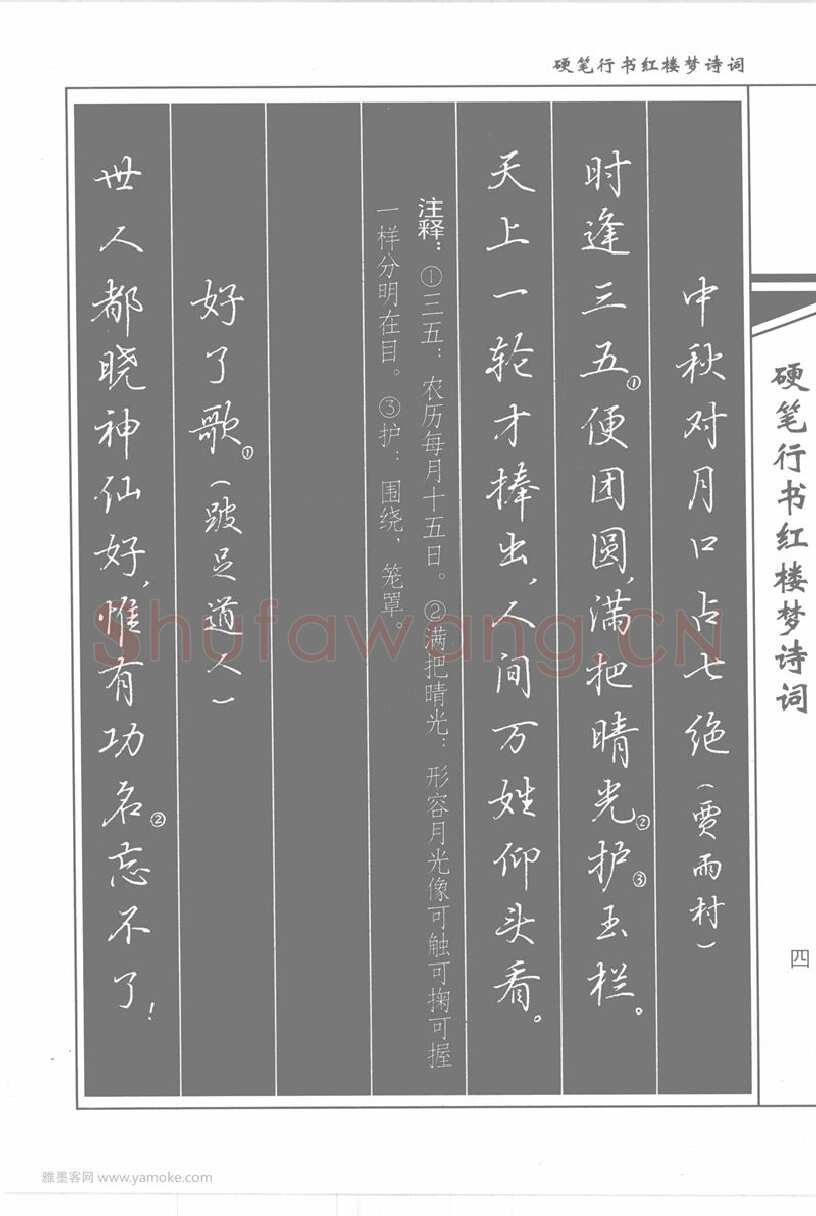 硬笔行书红楼梦诗词
硬笔行书红楼梦诗词
四
中秋对月口占七绝(贾雨村)
时逢三五①便团圆,满把晴光②护③玉栏。
天上一轮才捧出,人间万姓仰头看。
注释:①三五:农历每月十五日。②满把晴光:形容月光像可触可掬可握
一样分明在目。③护:围绕、笼罩。
好了歌①(跛足道人)
世人都晓神仙好,惟有功名②忘不了!
Shufawang.CN
雅墨客网 www.yamoke.com